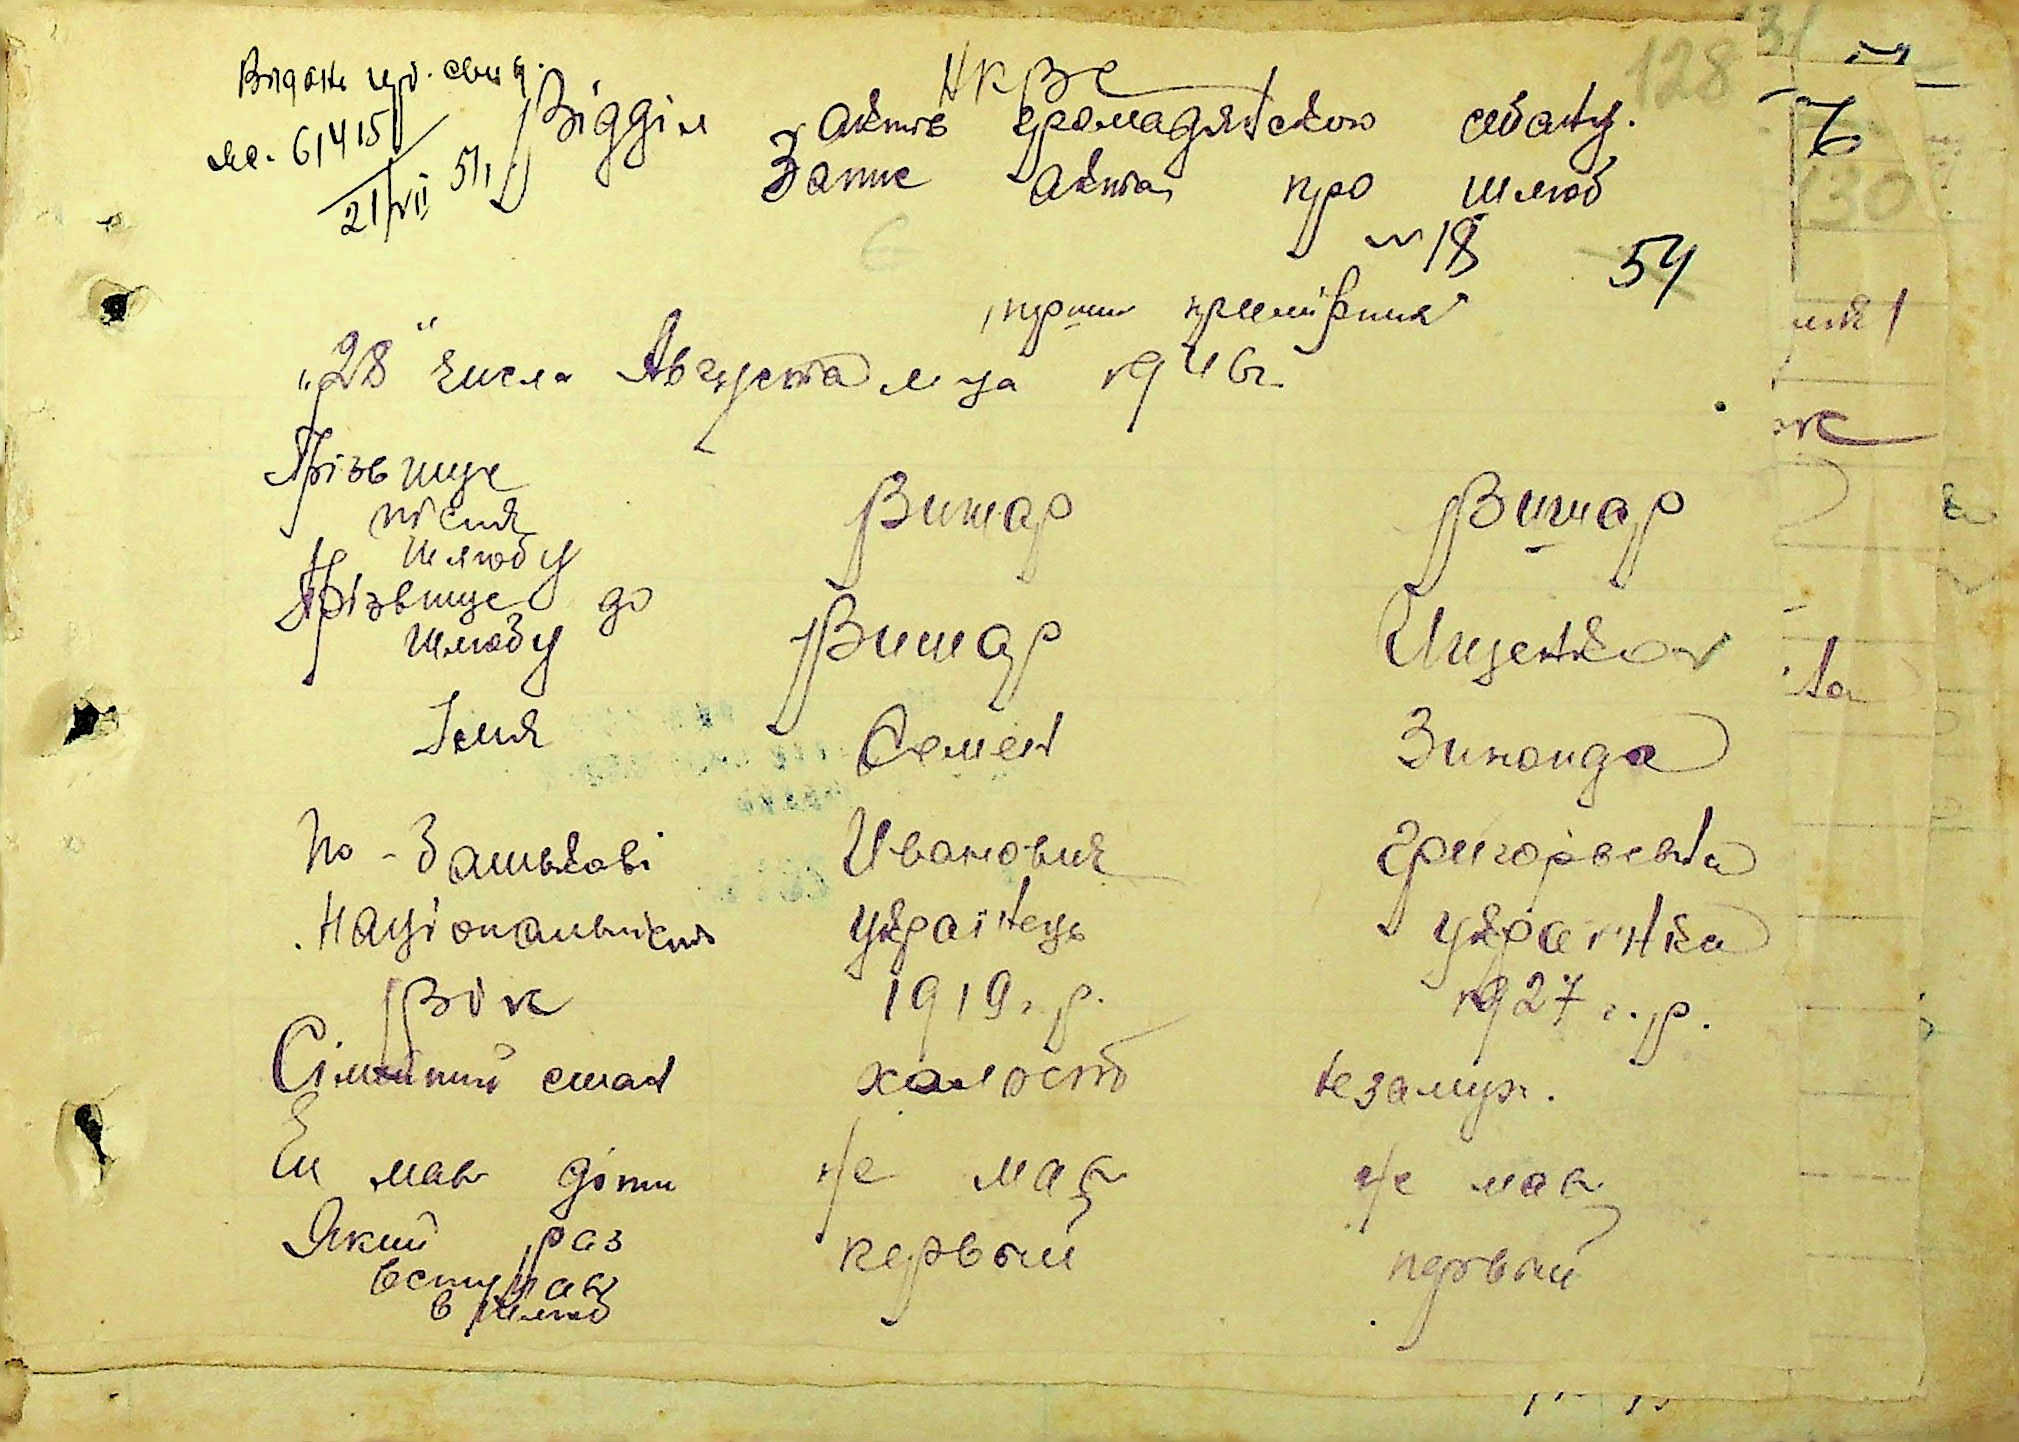 НКВС
Відділ актів громадянського стану.
Запис акта про шлюб
№18
54
128
130
№. 61415
21/VII 51
"перши примірник"
"28" числа Августа м-ца 1946 г.
Прізвище після шлюбу Вишар Вишар
Прізвище до шлюбу Вишар Ищенко
Імя Семен Зинаида
По-батькові Иванович Григорьевна
Національність українець українка
Вік 1919 г.р. 1927 г.р.
Сімейний стан холост незамуж.
Чи мав діти не мав не мав
Який раз вступав в шлюб первый первый